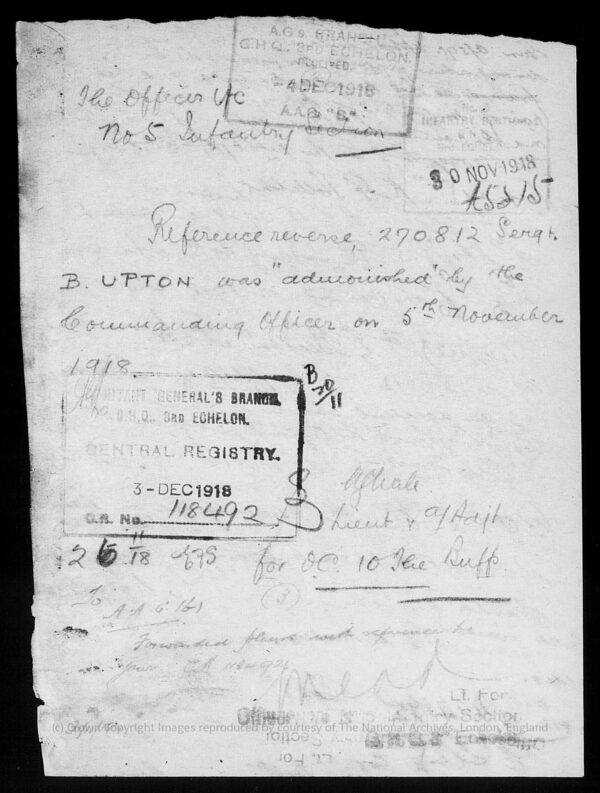 A.G's BRANCH
G.H.Q. 3RD ECHELON.
RECEIVED.
-4 DEC 1918
A.A.G. "B."
The Officer i/c
No 5 Infantry Section
INFANTRY
30 NOV 1918
Reference reverse, 270812 Sergt.
B. UPTON was "admonished" by the
Commanding Officer on 5th November
1918.
B
30/11
ADJUTANT GENERAL'S BRANCH,
G.H.Q., 3RD ECHELON.
CENTRAL REGISTRY.
3-DEC 1918
C.R. No. 118492
Lieut & a/Adjt
for O.C. 10 The Buffs
11
18
(3)
To
Forwarded please with reference to
your C.R. 118492
Lt. For
Officer Infantry Section
(c) Crown Copyright Images reproduced by courtesy of The National Archives, London, England
Lt. For